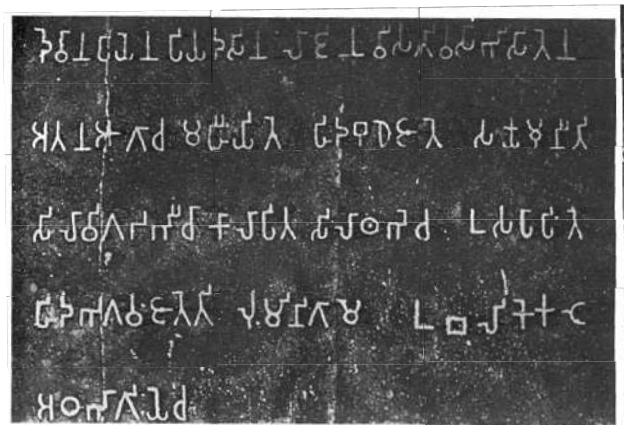 𑀤𑁂𑀯𑀸𑀦𑀧𑀺𑀬𑁂𑀦𑀧𑀺𑀬𑀤𑀲𑀺𑀦 𑀮𑀸𑀚𑀺𑀦𑀯𑀻𑀲𑀢𑀺𑀯𑀲𑀸𑀪𑀺𑀲𑀺𑀢𑁂𑀦
𑀅𑀢𑀦𑀆𑀕𑀸𑀘 𑀫𑀳𑀻𑀬𑀺𑀢𑁂 𑀳𑀺𑀤𑀩𑀼𑀥𑁂𑀚𑀸𑀢𑁂 𑀲𑀓𑁆𑀬𑀫𑀼𑀦𑀻𑀢𑀺
𑀲𑀺𑀮𑀸𑀯𑀺𑀕𑀟𑀪𑀻𑀘𑀸𑀓𑀸𑀮𑀸𑀧𑀺𑀢 𑀲𑀺𑀮𑀸𑀣𑀪𑁂𑀘 𑀉𑀲𑀧𑀸𑀧𑀺𑀢𑁂
𑀳𑀺𑀤𑀪𑀕𑀯𑀁𑀚𑀸𑀢𑁂𑀢𑀺 𑀮𑀼𑀁𑀫𑀺𑀦𑀺𑀕𑀸𑀫𑁂 𑀉𑀩𑀮𑀺𑀓𑁂𑀓𑀝𑁂
𑀅𑀞𑀪𑀸𑀕𑀺𑀬𑁂𑀘